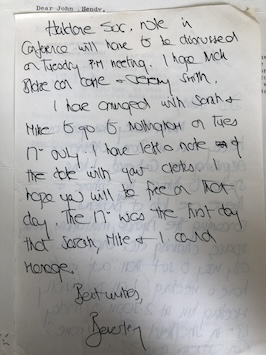 Dear John Hendy,
Haldane Soc. role in
Conference will have to be discussed
on Tuesday PM meeting. I hope Nick
Blake can come + Jeremy Smith.
I have arranged with Sarah +
Mike to go to Nottingham on Tues
17th only. I have left a note of
the date with your clerks. I
hope you will be free on that
day. The 17th was the first day
that Sarah, Mike + I could
manage.
Best wishes,
Beverley